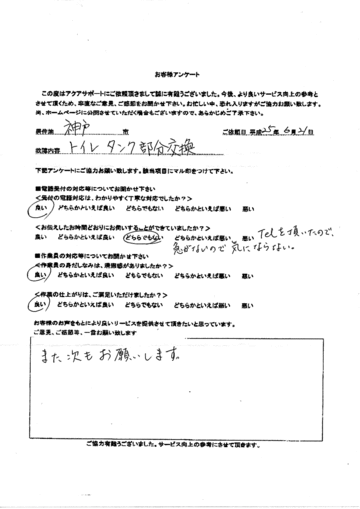 お客様アンケート
この度はアクアサポートにご依頼頂きまして誠に有難うございました。今後、より良いサービス向上の参考と
させて頂くため、率直なご意見、ご感想をお聞かせ下さい。お忙しい中、恐れ入りますがご協力お願い致します。
尚、ホームページに公開させていただく場合もございますので、あらかじめご了承下さい。
居住地 神戸 市 ご依頼日 平成25年6月21日
故障内容 トイレタンク部分交換
下記アンケートにご協力お願い致します。該当項目にマル印をつけて下さい。
■電話受付の対応等についてお聞かせ下さい
<受付の電話対応は、わかりやすく丁寧な対応でしたか?>
良い どちらかといえば良い どちらでもない どちらかといえば悪い 悪い
<お伝えしたお時間どおりにお伺いすることができていましたか?>
良い どちらかといえば良い どちらでもない どちらかといえば悪い 悪い
Telを頂いたので、
急がないので気にならない。
■作業員の対応等についてお聞かせ下さい
<作業員の身だしなみは、清潔感がありましたか?>
良い どちらかといえば良い どちらでもない どちらかといえば悪い 悪い
<作業の仕上がりは、ご満足いただけましたか?>
良い どちらかといえば良い どちらでもない どちらかといえば悪い 悪い
お客様のお声をもとにより良いサービスを提供させて頂きたいと思っています。
ご意見、ご感想等、一言お願い致します
また次もお願いします。
ご協力有難うございました。サービス向上の参考にさせて頂きます。